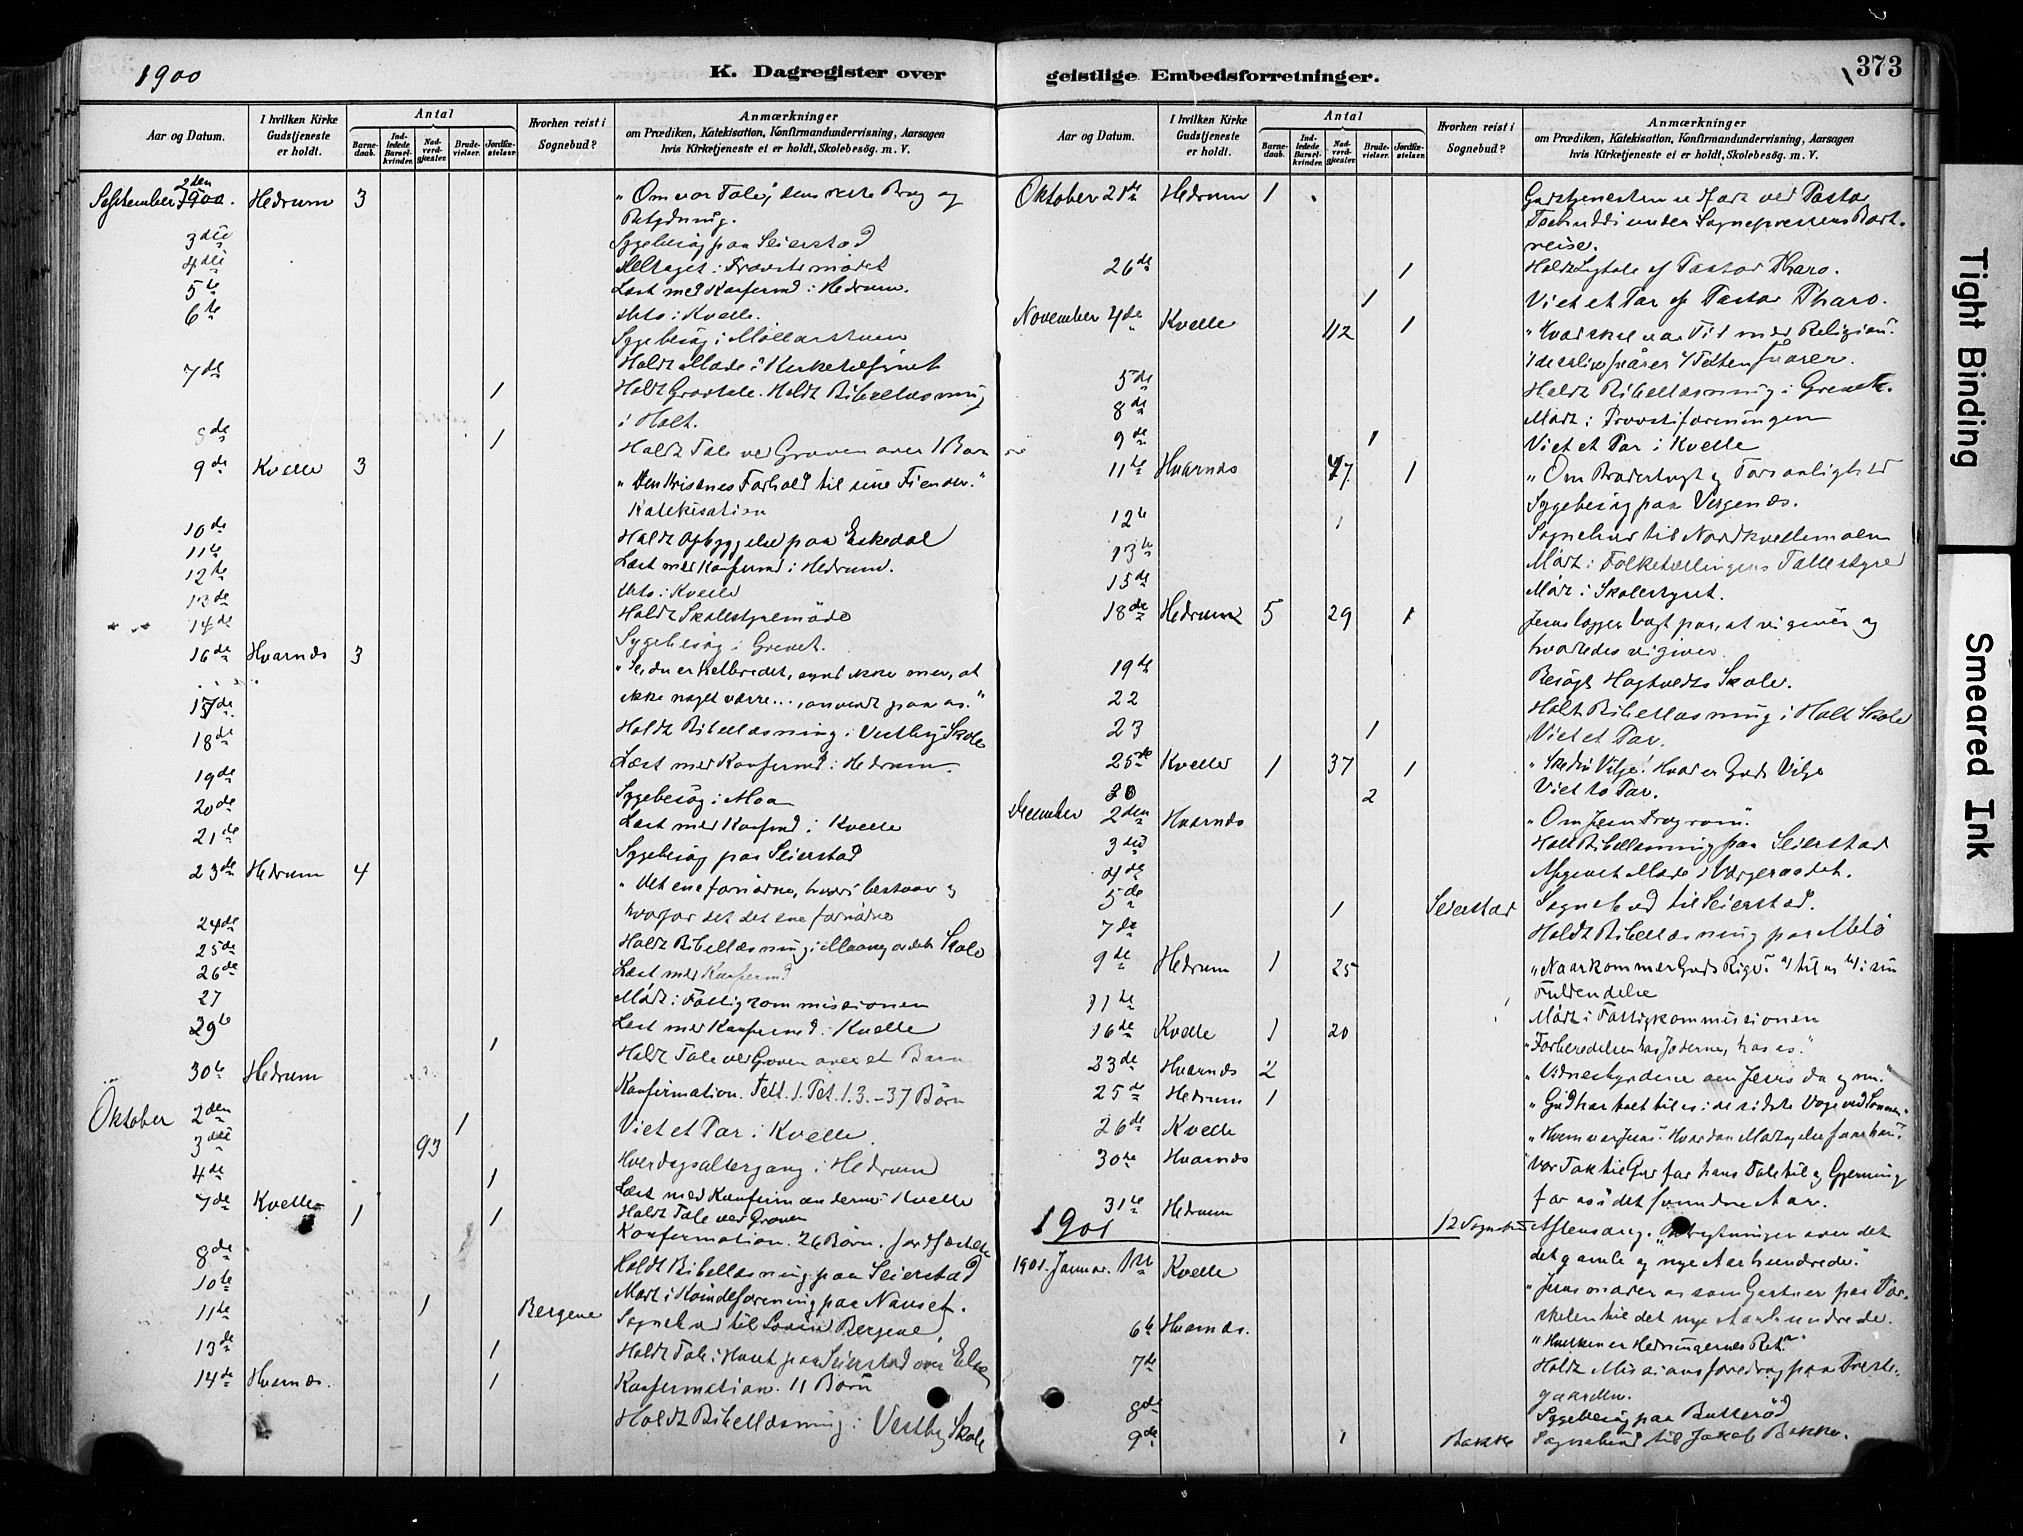 1900
K. Dagregister over
Aar og Datum.
I hvilken Kirke Gudstjeneste er holdt.
Antal
Barnedaab.
Indledede Barselkvinder.
Nadverdgjæster.
Brudevielser.
Jordfæstelser.
Hvorhen reist i Sognebud?
Anmærkninger
om Prædiken, Katekisation, Konfirmandundervisning, Aarsagen
hvis Kirketjeneste ei er holdt, Skolebesøg. m. V.
September 2den 1900. Hedrum 3 "Om vor Tale, dens rette Brug og
Betydning.
3die Sygebesøg paa Seierstad
4die Deltaget i Provstemødet
5te Læst med Konfirmd i Hedrum.
6te Dito i Kvelle.
Sygebesøg i Møllarstuen
7de Holdt Møde i Kirketilsynet
1 Holdt Gravtale. Holdt Bibellæsning
i Holt.
8de 1 Holdt Tale ved Graven over 1 Barn
9de Kvelle 3 "Den Kristnes Forhold til sine Fiender."
Katekisation
10de Holdt Opbyggelse paa Eskedal
11te Læst med Konfirmd i Hedrum.
12te Dito i Kvelle
13de Holdt Skolestyremøde
14de Sygebesøg i Grevet.
16de Hvarnes 3 "Se, du er helbredet, synd ikke mer, at
ikke noget værre..., anvendt paa os."
17de Holdt Bibellæsning i Vestby Skole
18de Læst med Konfirmd i Hedrum.
19de Sygebesøg i Moa
20de Læst med Konfmd i Kvelle
21de Sygebesøg paa Seierstad
23de Hedrum 4 "Det ene fornødne, hvori bestaar og
hvorfor det det ene fornødne
24de Holdt Bibellæsning i Skole
25de Læst med Konfirmd
26de Mødt i Fattigkommissionen
27 Læst med Konfirmd i Kvelle
29de 1 Holdt Tale ved Graven over et Barn
30te Hedrum Konfirmation. Text. 1. Pet. 1. 3. – 37 Børn
Oktober 2den 1 Viet et Par i Kvelle.
3die 93 Hverdagsaltergang i Hedrum
4de 1 Læst med Konfirmanderne i Kvelle
7de Kvelle 1 1 Holdt Tale ved Graven
Konfirmation. 26 Børn. Jordfæstelse
8de Holdt Bibellæsning paa Seierstad
10de Mødt i Kvindeforening paa Nanset.
11te 1 Bergene Sognebud til Bergene
13de 1 Holdt Tale i Huset paa Seierstad over
14de Hvarnes. 1 Konfirmation. 11 Børn
Holdt Bibellæsning i Vestby Skole
geistlige Embedsforretninger.
373
Aar og Datum.
I hvilken Kirke Gudstjeneste er holdt.
Antal
Barnedaab.
Indledede Barselkvinder.
Nadverdgjæster.
Brudevielser.
Jordfæstelser.
Hvorhen reist i Sognebud?
Anmærkninger
om Prædiken, Katekisation, Konfirmandundervisning, Aarsagen
hvis Kirketjeneste ei er holdt, Skolebesøg. m. V.
Oktober 21de Hedrum 1 Gudstjenesten udført ved Pastor
Tschudi under Sognepræstens Bort-
reise.
26de 1 Holdt Ligtale af Pastor Tharo.
1 Viet et Par af Pastor Tharo.
November 4de Kvelle 42 1 "Hvad skal vor Tid med Religion".
5de Holdt Bibellæsning i Grevet.
8de Mødt i Provstiforeningen
9de 1 Viet et Par i Kvelle
11te Hvarnes 47 1 "Om Brodertugt og Forsonlighed
Sygebesøg paa Vergenes.
12te 1 Sognebud til Nordkvellemoen
13te Mødt i Folketællingens Tællestyre
15de Mødt i Skolestyret.
18de Hedrum 5 29 1 Jesus lægger Vægt paa, at vi giver og
hvorledes vi giver.
19de Besøgt Hogtvedts Skole.
22 Holdt Bibellæsning i Holt Skole
23 1 Viet et Par.
25de Kvelle 1 37 1 "Ske din Vilje! Hvad er Guds Vilje
30 2 Viet to Par.
December 2den Hvarnes "Om Jesu Program".
3die Holdt Bibellæsning paa Seierstad
4de Afgivet Møde i Værgeraadet.
5de 1 Seierstad Sognebud til Seierstad.
7de Holdt Bibellæsning paa Melø
9de Hedrum 1 25 "Naar kommer Guds Rige". a) til os b) i sin
Fuldendelse
11te Mødt i Fattigkommissionen
16de Kvelle 1 20 "Forberedelsen hos Jøderne, hos os."
23de Hvarnes 2 "Vidnesbyrdene om Jesus da og nu."
25de Hedrum 1 "Gud har talt til os i de sidste Dage ved Sønnen"
26de Kvelle "Hvem var Jesus". Hvordan Modtagelse faar han".
30te Hvarnes Vor Tak til Gud for hans Tale til og Gjerning
for os i det svundne Aar.
31te Hedrum 12 Sognebud Aftensang. "Betragtninger over det
det gamle og nye Aarhundrede."
1901
1901. Januar. 1ste Kvelle "Jesus møder os som Gartner paa Tær-
skelen til det nye Aarhundrede.
6te Hvarnes. "Hvilken er Hedningernes Ret."
7de Holdt Missionsforedrag paa Preste-
gaarden.
8de Sygebesøg paa Butterød
9de 1 Bakke Sognebud til Jakob Bakke.
Tight Binding
Smeared Ink